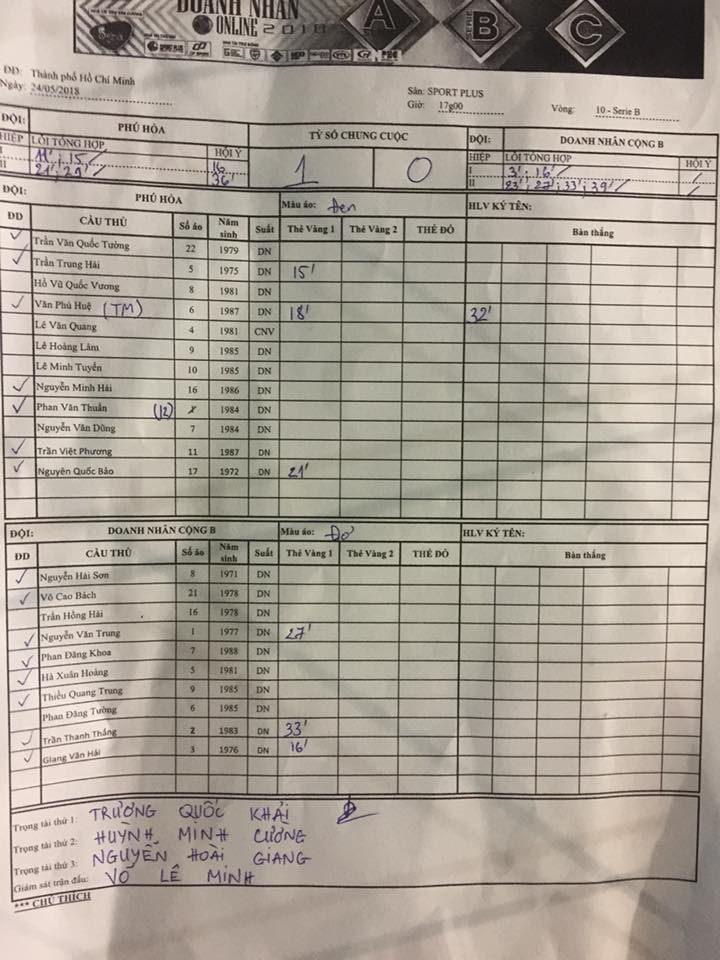 DOANH NHÂN
ONLINE 2018
A SERIE B C
ĐĐ: Thành phố Hồ Chí Minh
Ngày: 24/05/2018
Sân: SPORT PLUS
Giờ: 17g00 Vòng: 10 - Serie B
ĐỘI: PHÚ HÒA TỶ SỐ CHUNG CUỘC ĐỘI: DOANH NHÂN CỘNG B
HIỆP LỖI TỔNG HỢP HỘI Ý 1 0 HIỆP LỖI TỔNG HỢP HỘI Ý
I 11'; 15' 16 I 3'; 16' /
II 21'; 29' 36' II 23'; 27'; 33'; 39' /
ĐỘI: PHÚ HÒA Màu áo: Đen HLV KÝ TÊN:
ĐD CẦU THỦ Số áo Năm sinh Suất Thẻ Vàng 1 Thẻ Vàng 2 THẺ ĐỎ Bàn thắng
✓ Trần Văn Quốc Tường 22 1979 DN
✓ Trần Trung Hải 5 1975 DN 15'
Hồ Vũ Quốc Vương 8 1981 DN
✓ Văn Phú Huệ (TM) 6 1987 DN 18' 32'
Lê Văn Quang 4 1981 CNV
Lê Hoàng Lâm 9 1985 DN
Lê Minh Tuyển 10 1985 DN
✓ Nguyễn Minh Hải 16 1986 DN
✓ Phan Văn Thuấn (12) 1984 DN
Nguyễn Văn Dũng 7 1984 DN
✓ Trần Việt Phương 11 1987 DN
✓ Nguyễn Quốc Bảo 17 1972 DN 21'
ĐỘI: DOANH NHÂN CỘNG B Màu áo: Đỏ HLV KÝ TÊN:
ĐD CẦU THỦ Số áo Năm sinh Suất Thẻ Vàng 1 Thẻ Vàng 2 THẺ ĐỎ Bàn thắng
✓ Nguyễn Hải Sơn 8 1971 DN
✓ Võ Cao Bách 21 1978 DN
Trần Hồng Hải 16 1978 DN
✓ Nguyễn Văn Trung 1 1977 DN 27'
✓ Phan Đăng Khoa 7 1988 DN
✓ Hà Xuân Hoàng 5 1981 DN
✓ Thiều Quang Trung 9 1985 DN
Phan Đăng Tường 6 1985 DN
✓ Trần Thanh Thắng 2 1983 DN 33'
✓ Giang Văn Hải 3 1976 DN 16'
Trọng tài thứ 1: TRƯƠNG QUỐC KHẢI
Trọng tài thứ 2: HUỲNH MINH CƯƠNG
Trọng tài thứ 3: NGUYỄN HOÀI GIANG
Giám sát trận đấu: VÕ LÊ MINH
*** CHÚ THÍCH